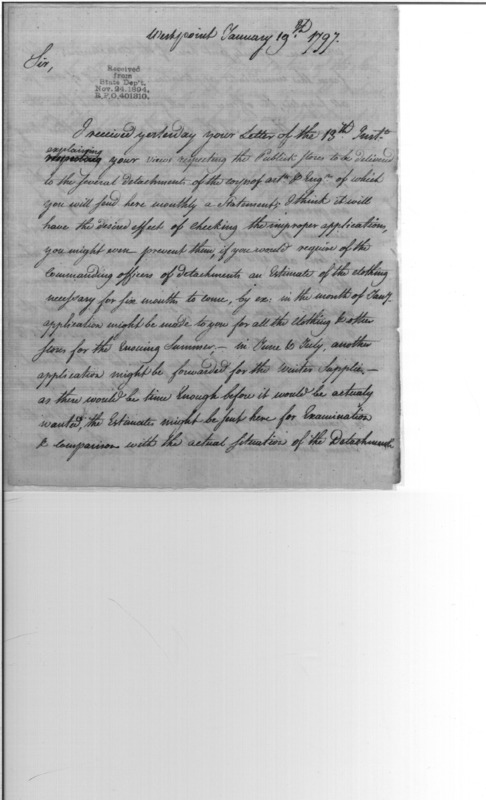 Westpoint January 19th 1797.
Sir,
Received
from
State Dep't.
Nov. 24, 1894.
R.P.O. 401310.
I received yesterday your Letter of the 13th Inst.
explaining
respecting your views respecting the Publick stores to be delivered
to the several Detachments of the corps of art. & Eng. of which
you will send here monthly a Statement, I think it will
have the desired effect of checking the improper application,
you might even prevent them if you would require of the
Commanding officers of detachments an Estimate of the clothing
necessary for six months to come, by ex: in the month of Jany.
application might be made to you for all the clothing & other
stores for the Ensuing Summer, – in June & July, another
application might be forwarded for the Winter Supplies, –
as there would be time Enough before it would be actualy
wanted, the Estimates might be sent here for Examination
& comparison with the actual Situation of the Detachments